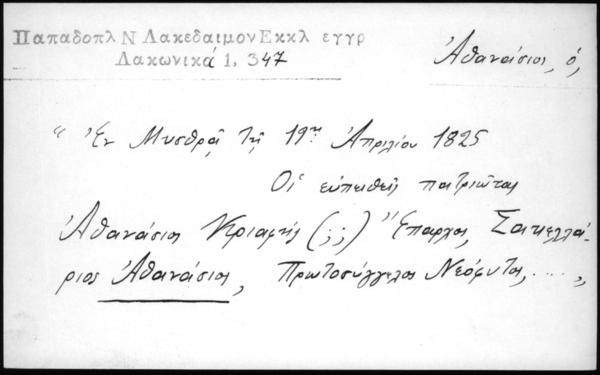 Παπαδοπλ Ν Λακεδαιμον Εκκλ εγγρ
Λακωνικά 1, 347
Ἀθανάσιος, ὁ,
“ Ἐν Μυσθρᾷ τῇ 19ῃ Ἀπριλίου 1825
Οἱ εὐπειθεῖς πατριῶται
Ἀθανάσιος Κριαρῆς (;;) Ἔπαρχος, Σακελλά-
ριος Ἀθανάσιος, Πρωτοσύγγελος Νεόφυτος, .... „